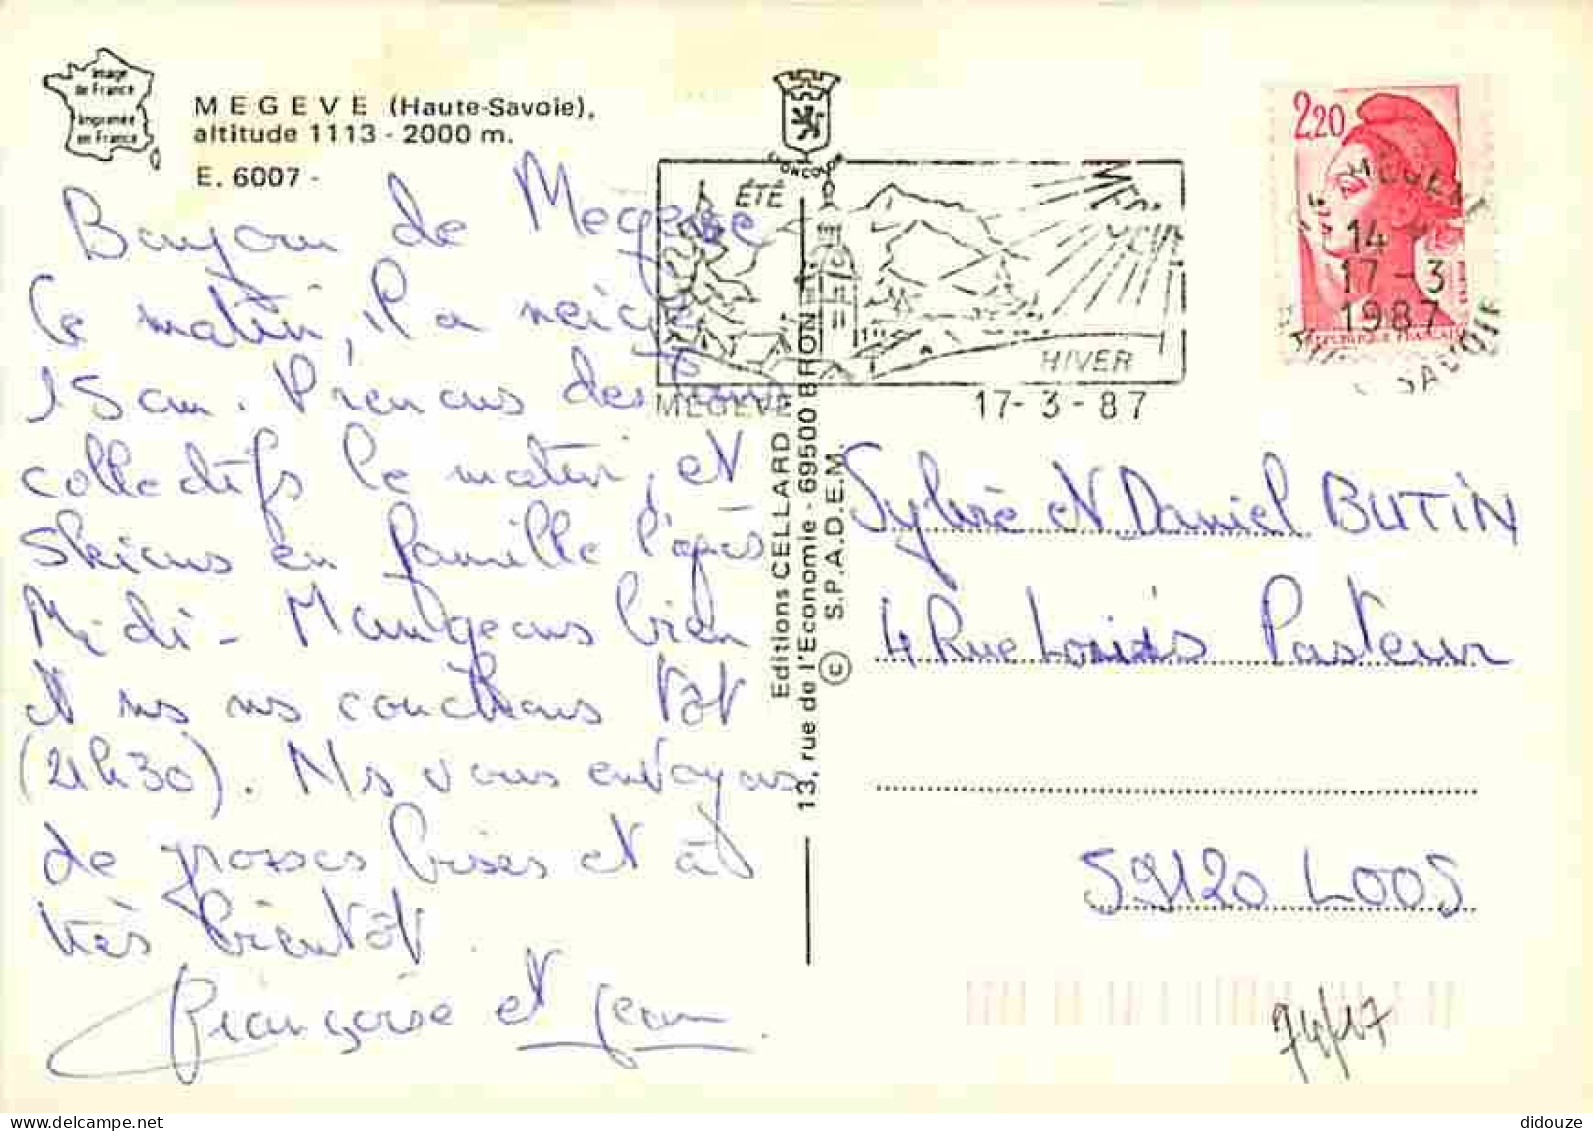 Image
de France
Imprimée
en France
MEGEVE (Haute-Savoie),
altitude 1113 - 2000 m.
E. 6007 -
Bonjour de Megève
Ce matin, il a neigé
15 cm. Prenons des
collectifs le matin, et
skions en famille l'après
Midi - Mangeons bien
et ns ns couchons tôt
(21h30). Ns vous envoyons
de grosses bises et à
très bientôt.
Françoise et Jean
LYONCOLOR
ÉTÉ
MEGEVE
HIVER
MEGEVE
17-3-87
2,20
MEGEVE
14 H
17-3
1987
HTE SAVOIE
REPUBLIQUE FRANÇAISE
Editions CELLARD
13, rue de l'Economie - 69500 BRON
© S.P.A.D.E.M.
Sylvie et Daniel BUTIN
4 Rue Louis Pasteur
59120 LOOS
74/17
didouze